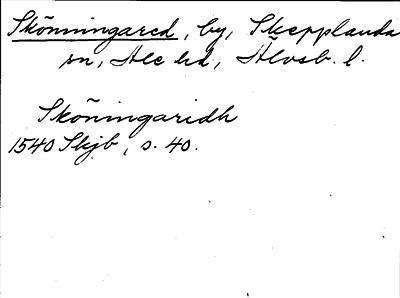 Skönningared, by, Skepplanda
sn, Ale hd, Älvsb. l.
Sköningaridh
1540 Skjb, s. 40.